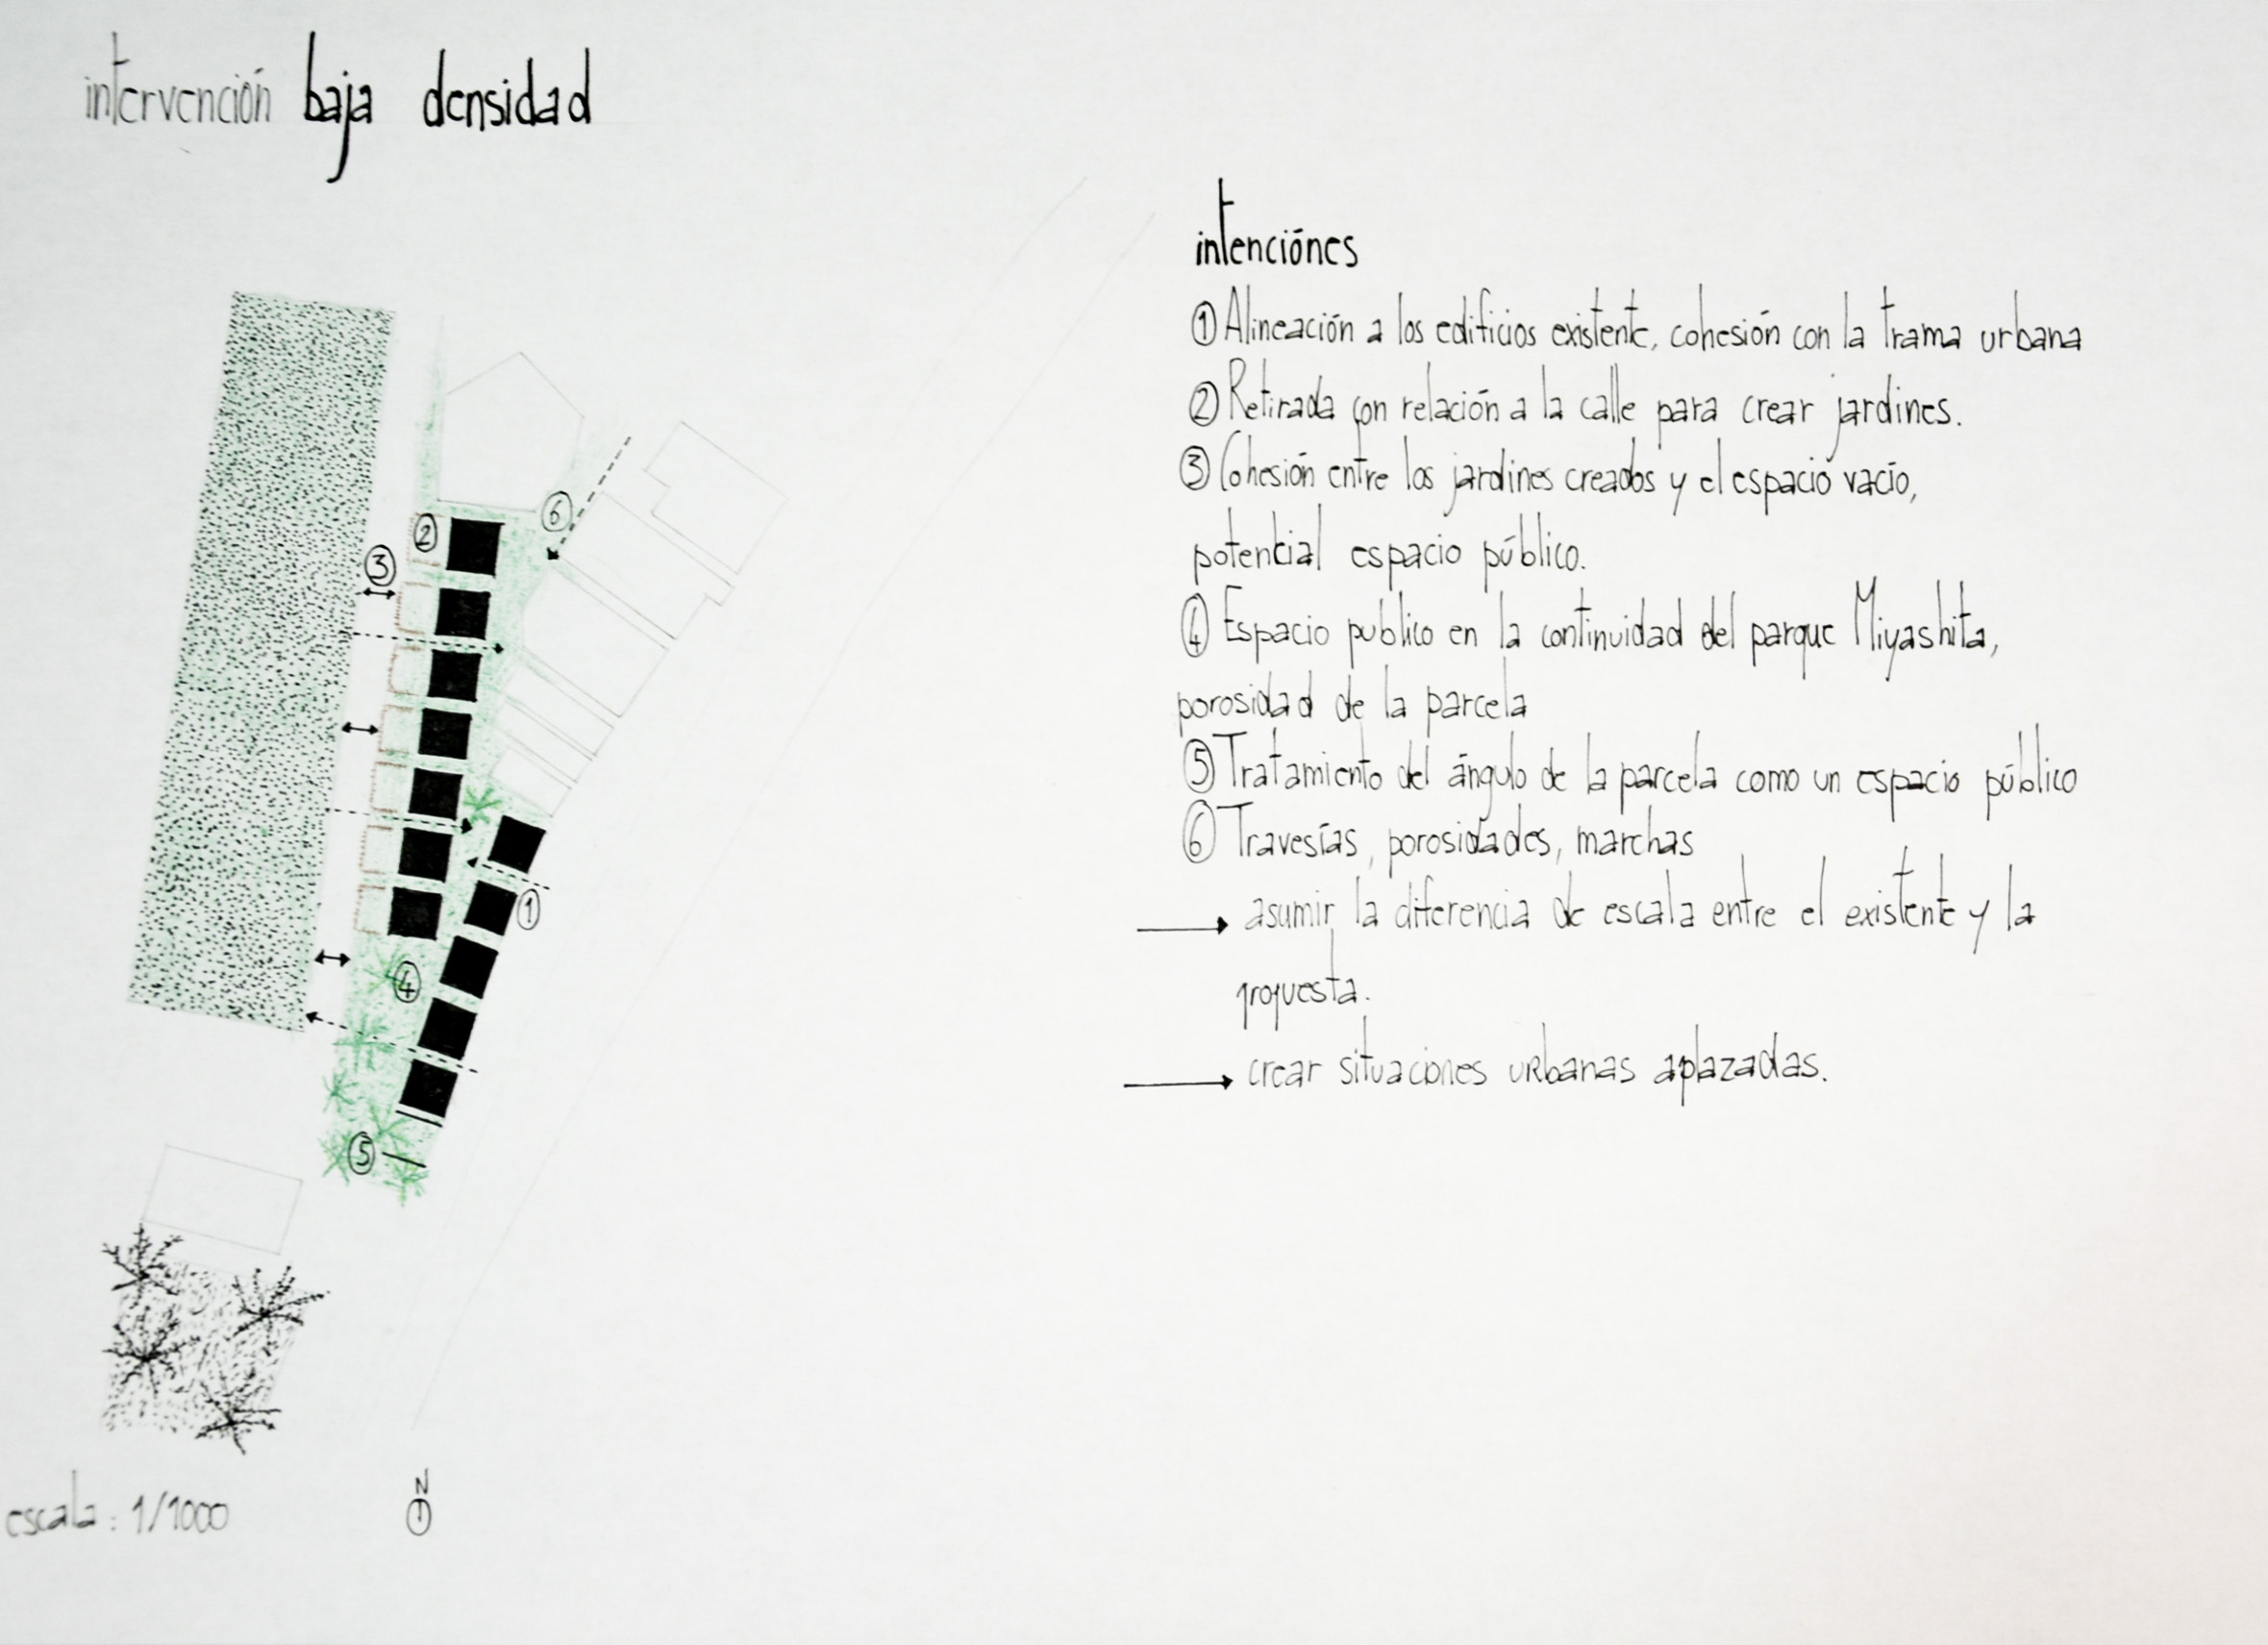 intervención baja densidad
intenciónes
① Alineación a los edificios existente, cohesión con la trama urbana
② Retirada con relación a la calle para crear jardines.
③ Cohesión entre los jardines creados y el espacio vacío,
potential espacio público.
④ Espacio publico en la continuidad del parque Miyashita,
porosidad de la parcela
⑤ Tratamiento del ángulo de la parcela como un espacio público
⑥ Travesías, porosidades, marchas
→ asumir la diferencia de escala entre el existente y la
proquesta.
→ crear situaciones urbanas aplazadas.
6
2
3
1
4
5
escala: 1/1000
N